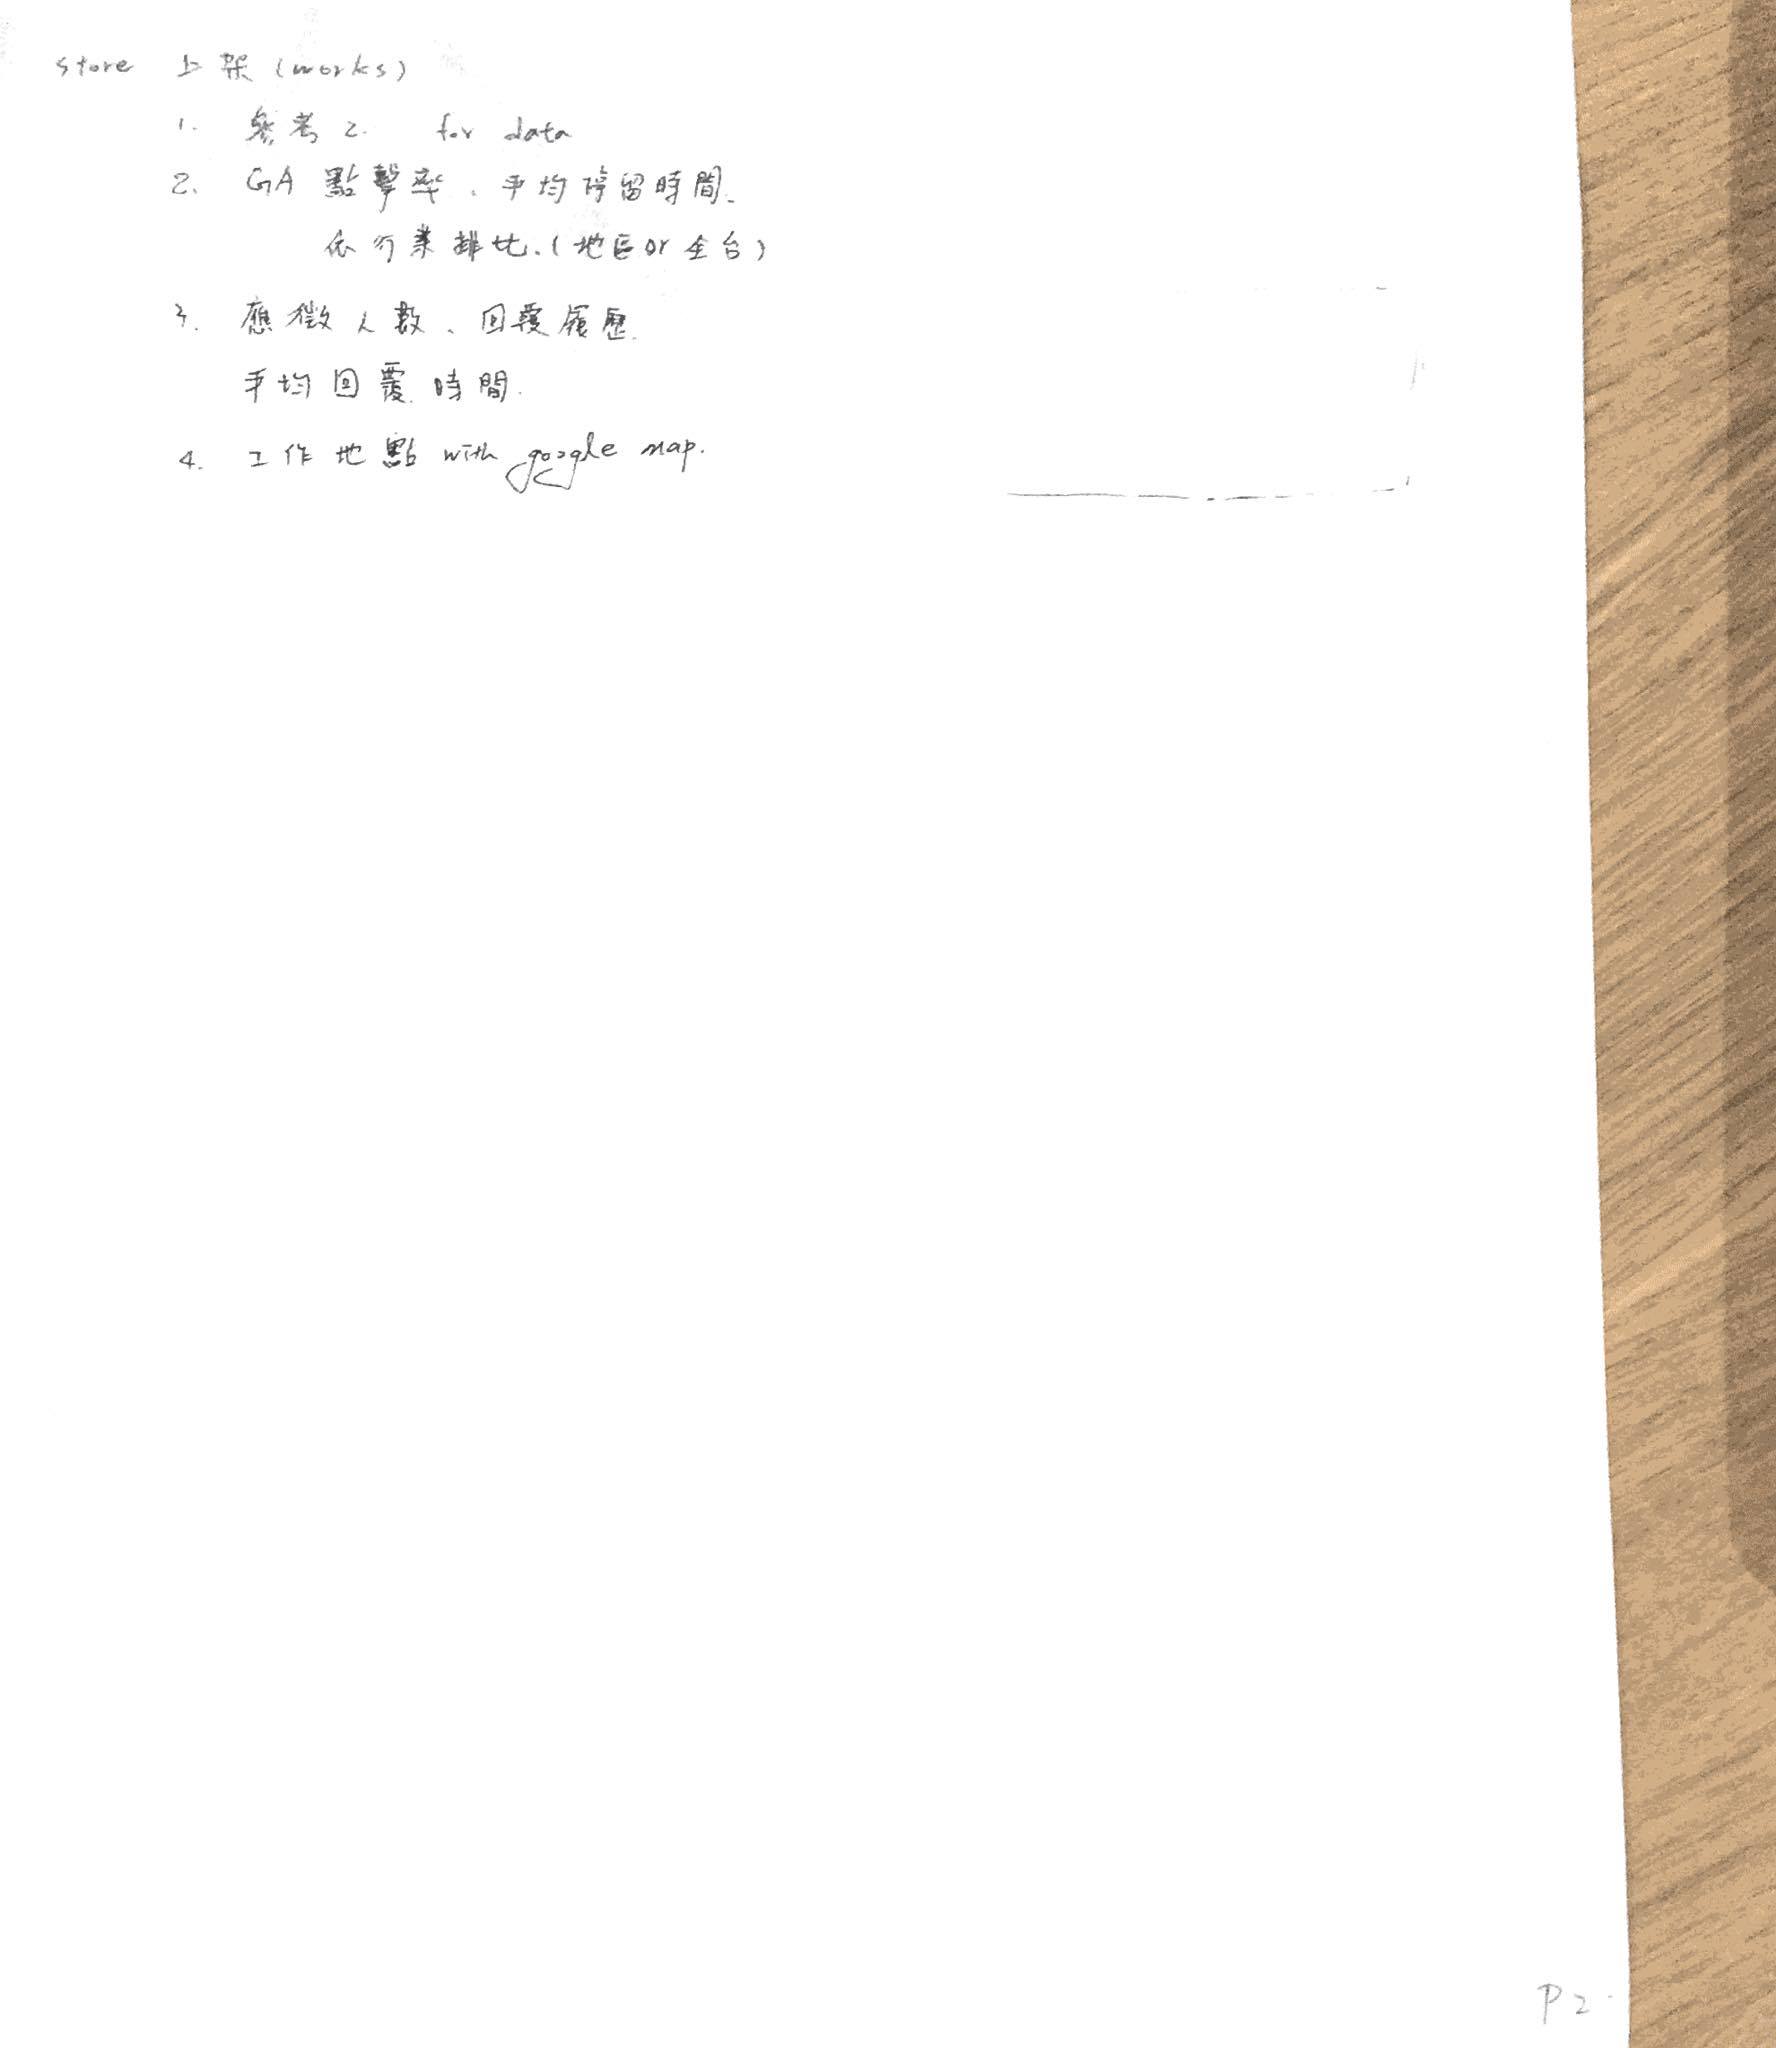 store 上架 (works)
1. 參考 2. for data
2. GA 點擊率、平均停留時間.
依行業排比.(地區 or 全台)
3. 應徵人數、回覆履歷.
平均回覆時間.
4. 工作地點 with google map.
P2.